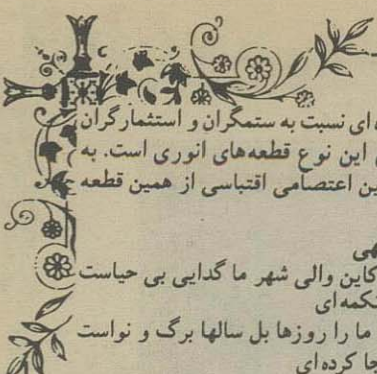 ه ای نسبت به ستمگران و استثمارگران
این نوع قطعه‌های انوری است. به
ین اعتصامی اقتباسی از همین قطعه
هی
کاین والی شهر ما گدایی بی حیاست
کمه ای
ما را روزها بل سالها برگ و نواست
جا کرده ای